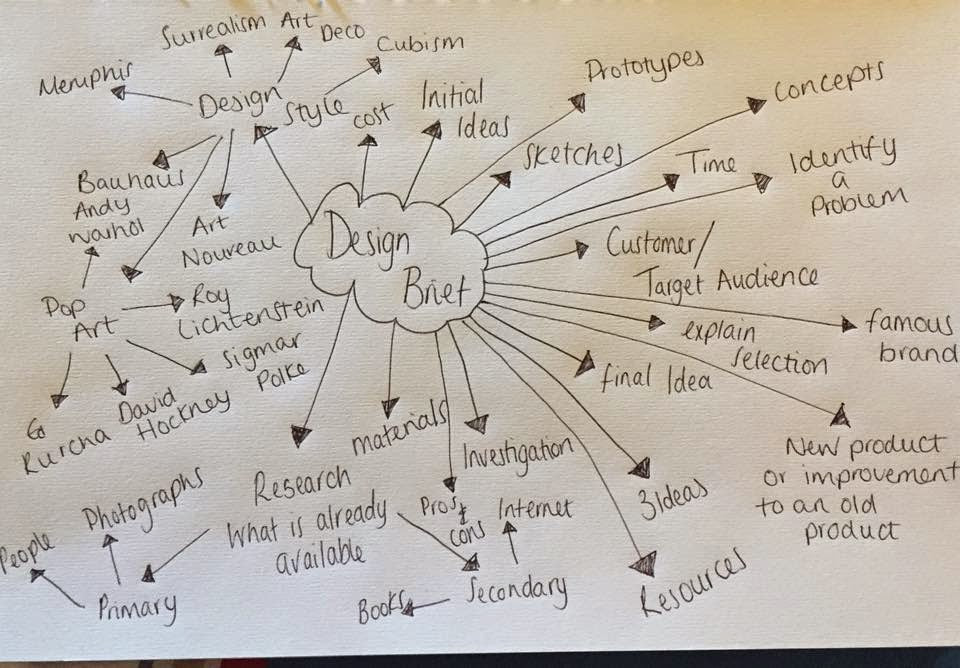 Surrealism
Art
Deco
Cubism
Memphis
Design
Style
cost
Initial
Ideas
Prototypes
Concepts
Sketches
Time
Identify
a
Problem
Bauhaus
Andy
Warhol
Art
Noureau
Design
Brief
Customer/
Target Audience
Pop
Art
Roy
Lichtenstein
Sigmar
Polke
David
Hockney
Rurcha
explain
Selection
famous
brand
final Idea
materials
Investigation
New product
or improvement
to an old
product
Research
What is already
available
Photographs
People
Primary
Pros &
cons
Internet
Secondary
Books
3 Ideas
Resources